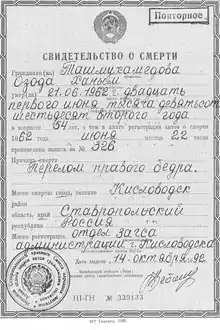 Повторное
СВИДЕТЕЛЬСТВО О СМЕРТИ
Гражданин(ка) Ташмухамедова
Озода Ханым
умер(ла) 21.06.1962 г. двадцать
первого июня тысяча девятьсот
шестьдесят второго года
в возрасте 54 лет, о чем в книге регистрации актов о смерти
62 года июня месяца 22 числа
произведена запись за № 326
Причина смерти
Перелом правого бедра.
Место смерти: город, селение Кисловодск
район
область, край Ставропольский
республика Россия
Место регистрации отдел загса
администрации г. Кисловодска
Дата выдачи 14 октября 92 г.
III-ГН № 339133